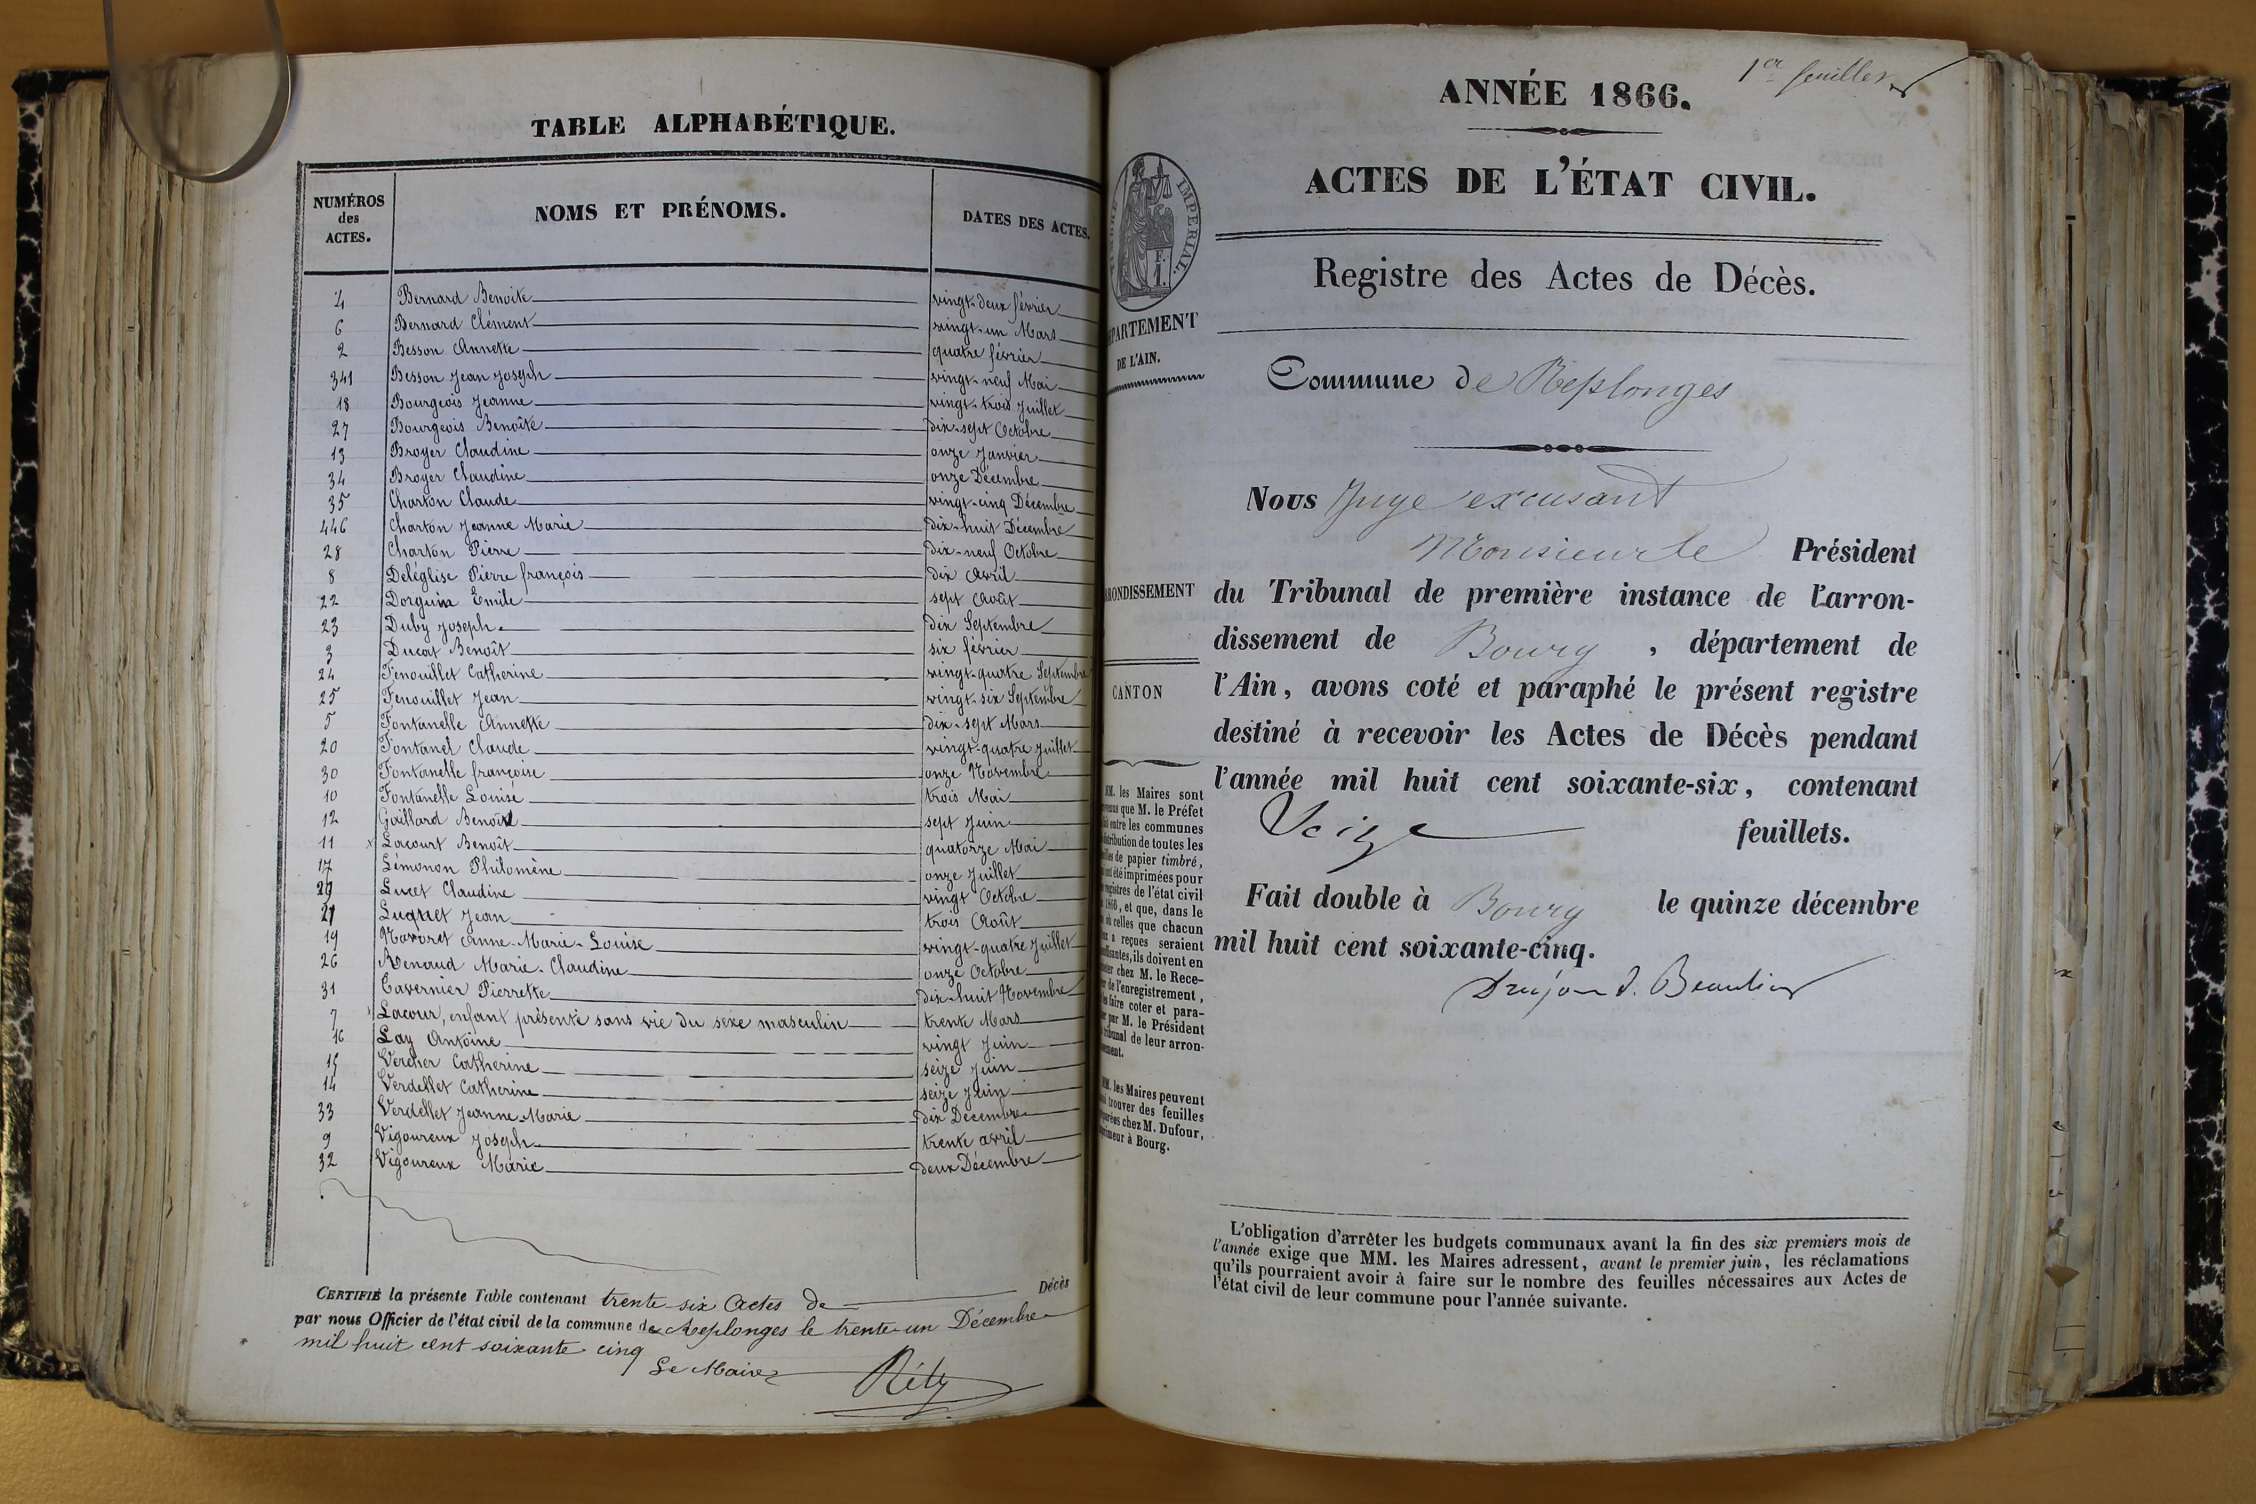 TABLE ALPHABÉTIQUE.
NUMÉROS des ACTES. NOMS ET PRÉNOMS. DATES DES ACTES.
4 Bernard Benoite vingt-deux février
6 Bernard Clément vingt-un Mars
2 Besson Annette quatre février
341 Besson Jean Joseph vingt-neuf Mai
18 Bourgeois Jeanne vingt-trois Juillet
27 Bourgeois Benoîte dix-sept Octobre
13 Broyer Claudine onze Janvier
34 Broyer Claudine onze Décembre
35 Charton Claude vingt-cinq Décembre
446 Charton Jeanne Marie dix-huit Décembre
28 Charton Pierre dix-neuf Octobre
8 Deléglise Pierre françois dix Avril
22 Dorguin Emile sept Août
23 Duby Joseph dix Septembre
3 Ducat Benoît six février
24 Fenouillet Catherine vingt-quatre Septembre
25 Fenouillet Jean vingt-six Septembre
5 Fontanelle Annette dix-sept Mars
20 Fontanel Claude vingt-quatre Juillet
30 Fontanelle françoise onze Novembre
10 Fontanelle Louise trois Mai
12 Gaillard Benoît sept Juin
11 Lacourt Benoît quatorze Mai
17 Lémonon Philomène onze Juillet
29 Lucet Claudine vingt Octobre
21 Luquet Jean trois Août
19 Navoret Anne-Marie-Louise vingt-quatre Juillet
26 Renaud Marie-Claudine onze Octobre
31 Tavernier Pierrette dix-huit Novembre
7 Lacour, enfant présenté sans vie du sexe masculin trente Mars
16 Lay Antoine vingt Juin
15 Vercher Catherine seize Juin
14 Verdellet Catherine seize Juin
33 Verdellet Jeanne-Marie dix Décembre
9 Vigoureux Joseph trente avril
32 Vigoureux Marie deux Décembre
CERTIFIÉ la présente Table contenant trente-six Actes de Décès
par nous Officier de l'état civil de la commune de Replonges le trente-un Décembre
mil huit cent soixante cinq
Le Maire
Réty
1er feuillet
ANNÉE 1866.
ACTES DE L'ÉTAT CIVIL.
TIMBRE IMPÉRIAL.
Registre des Actes de Décès.
DÉPARTEMENT
DE L'AIN.
Commune de Replonges
Nous Juge excusant
Monsieur le Président
ARRONDISSEMENT
du Tribunal de première instance de l'arron-
dissement de Bourg, département de
CANTON
l'Ain, avons coté et paraphé le présent registre
destiné à recevoir les Actes de Décès pendant
l'année mil huit cent soixante-six, contenant
Seize feuillets.
Fait double à Bourg le quinze décembre
mil huit cent soixante-cinq.
Drujon d. Beaulieu
MM. les Maires sont
que M. le Préfet
entre les communes
distribution de toutes les
de papier timbré,
été imprimées pour
registres de l'état civil
1866, et que, dans le
où celles que chacun
a reçues seraient
ils doivent en
chez M. le Rece-
de l'enregistrement,
faire coter et para-
par M. le Président
tribunal de leur arron-
MM. les Maires peuvent
trouver des feuilles
chez M. Dufour,
imprimeur à Bourg.
L'obligation d'arrêter les budgets communaux avant la fin des six premiers mois de
l'année exige que MM. les Maires adressent, avant le premier juin, les réclamations
qu'ils pourraient avoir à faire sur le nombre des feuilles nécessaires aux Actes de
l'état civil de leur commune pour l'année suivante.